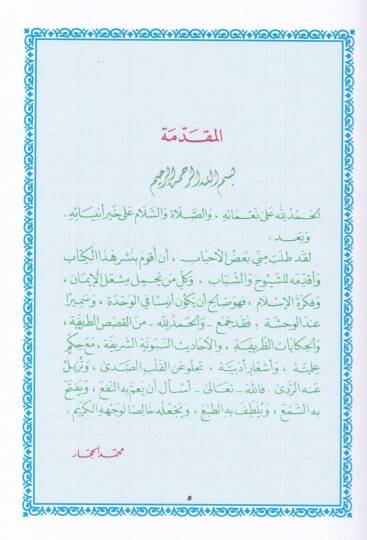 المقدّمة
بسم الله الرحمن الرحيم
الحَمْدُ لِلّه عَلى نَعْمَائهِ ، وَالصَّلَاة وَالسَّلَام عَلى خَير أنبيَائِهِ .
وَبَعد :
لقَد طلبَ مِنّي بَعضُ الأحبَاب ، أن أقومَ بنَشر هٰذا الكِتَاب
وَأقدّمَه للشّيُوخ وَالشّبَاب ، وَكلّ مَن يَحمِل مِشعَل الإيمَان ،
وَفِكرة الإسْلَام ، فهوَ صَالح أن يَكُون أنيسًا في الوَحْدَة ، وَسَميرًا
عندَ الوَحشَة ؛ فقَد جمَع - وَالحَمدُ لِلّه - مِنَ القصَصِ الطريفَة ،
وَالحكايَات الظريفَة ، وَالأحَاديث النّبَويَّة الشّريفَة ، مَع حِكَمٍ
عِلميّة ، وَأشعَار أدبيّة ، تجلو عَن القَلب الصّدىٰ ، وَتُزيلُ
عَنه الرّدىٰ . فاللهَ - تعَالىٰ - أسْأل أن يَعمَّ به النّفعَ ، وَيَفتَحَ
به السّمعَ ، وَيُلطِّفَ به الطبْعَ ، وَيجْعَلَه خَالصًا لوَجههِ الكَريم .
محمّد الحجّار
٥